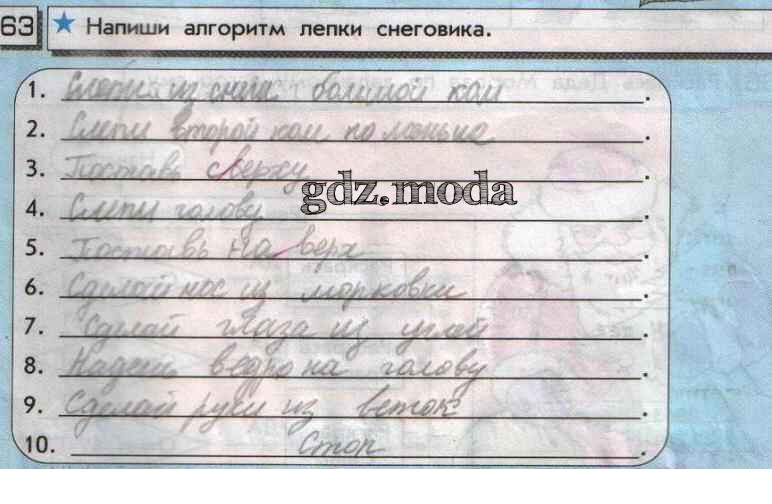 63 ★ Напиши алгоритм лепки снеговика.
1. Слепи из снега большой ком.
2. Слепи второй ком поменьше.
3. Поставь сверху.
gdz.moda
4. Слепи голову.
5. Поставь на верх.
6. Сделай нос из морковки.
7. Сделай глаза из углей.
8. Надень ведро на голову.
9. Сделай руки из веток.
10. Стоп.